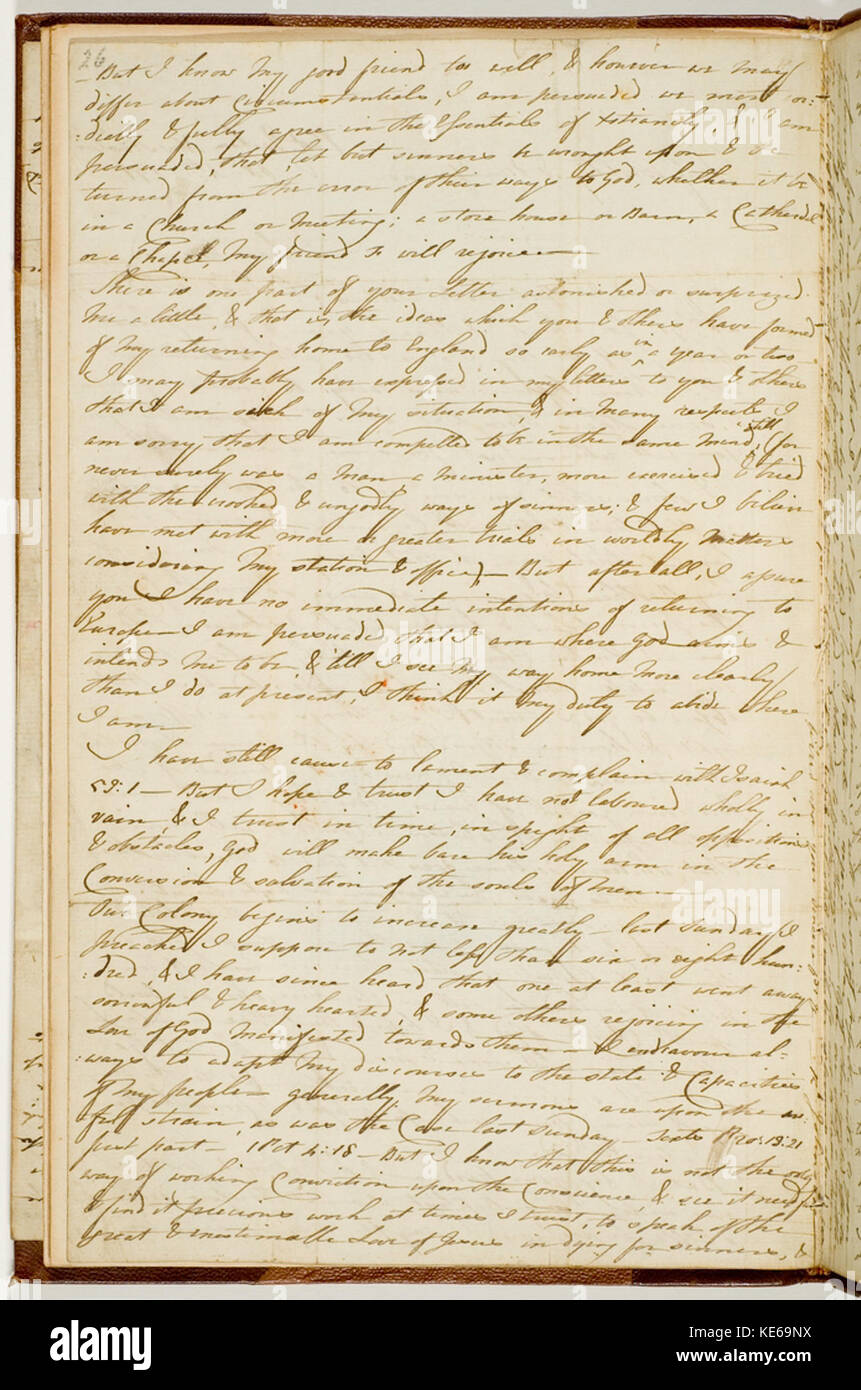 26
- But I know my good friend too well, & however we may
differ about circumstantials, I am persuaded we most cor=
:dially & fully agree in the Essentials of Xtianity, & I am
persuaded, that, let but sinners be wrought upon & be
turned from the error of their ways to God, whether it be
in a Church or Meeting; a store house or Barn, a Cathedral
or a Chapel, My friend will rejoice —
There is one part of your Letter astonished or surprized
me a little, & that is, the ideas which you & others have formed
of my returning home to England so early as in a year or two
I may probably have expressed in my letters to you & others
that I am sick of my situation, & in many respects I
am sorry that I am compelled to be in the same mind still, (for
never surely was a man, a minister, more exercised & tried
with the crooked & ungodly ways of sinners; & few I believe
have met with more or greater trials in worldly matters
considering my station & office) — But after all, I assure
you I have no immediate intentions of returning to
Europe — I am persuaded that I am where God &
intends me to be, & till I see my way home more clearly
than I do at present, I think it my duty to abide where
I am —
I have still cause to lament & complain with Isaiah
53:1 — But I hope & trust I have not laboured wholly in
vain, & I trust in time, in spight of all opposition
& obstacles, God will make bare his holy arm in the
Conversion & salvation of the souls of men —
Our Colony begins to increase greatly — last Sunday I
preached I suppose to not less than six or eight hun=
:dred, & I have since heard that one at least went away
sorrowful & heavy hearted, & some others rejoicing in the
Love of God manifested towards them — I endeavour al=
:ways to adapt my discourses to the state & Capacities
of my people — generally, my sermons are upon the aw:
:ful strain, as was the Case last Sunday — Texts Pro: 13:21
first part — 1 Pet 4:18 — But I know that this is not the only
way of working Conviction upon the Conscience, & see it needful
& find it precious work at times I trust, to speak of the
great & inestimable Love of Jesus in dying for sinners, &
alamy
alamy
Image ID: KE69NX
www.alamy.com